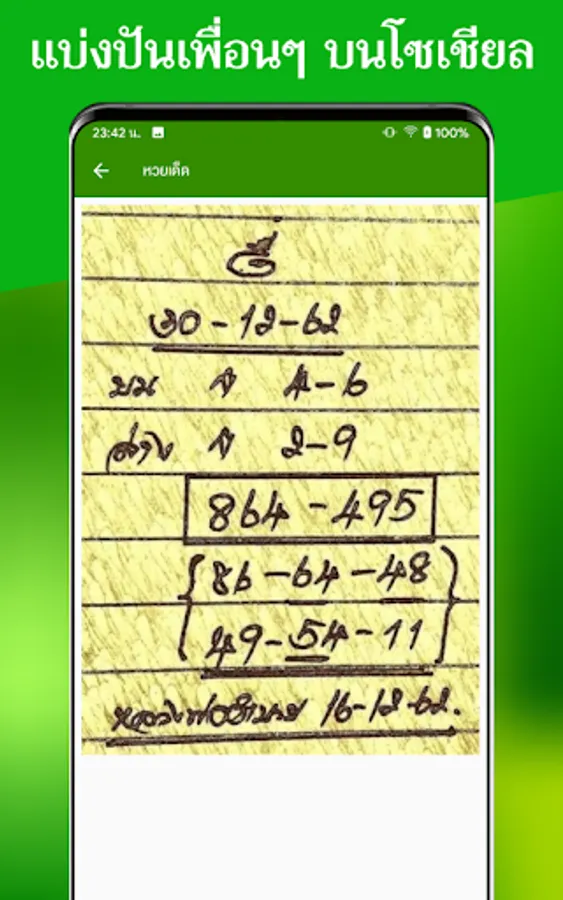 แบ่งปันเพื่อนๆ บนโซเชียล
23:42 น. 100%
หวยเด็ด
30-12-62
บน 4-6
ล่าง 2-9
864-495
86-64-48
49-54-11
16-12-62.